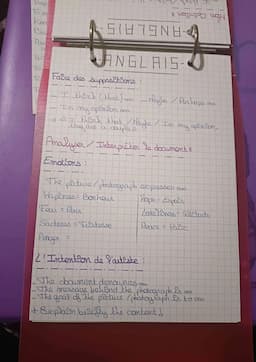 -ANGLAIS-
Faire des suppositions :
- I think (that) ... Maybe / Perhaps ...
- In my opinion ...
I think that / Maybe / In my opinion,
they are a couple
Analyser / Interpréter le document
Emotions :
The picture / photograph expresses ...
Happiness = Bonheur
Hope = Espoir
Fear = Peur
Loneliness = Solitude
Sadness = Tristesse
Peace = Paix
Anger =
L'Intention de l'artiste :
- The document denounces ...
- The message behind the photograph is ...
- The goal of the picture / photograph is to ...
+ Explain briefly the content